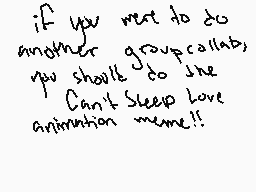 if you were to do
another group collab,
you should do the
Can't Sleep Love
animation meme!!